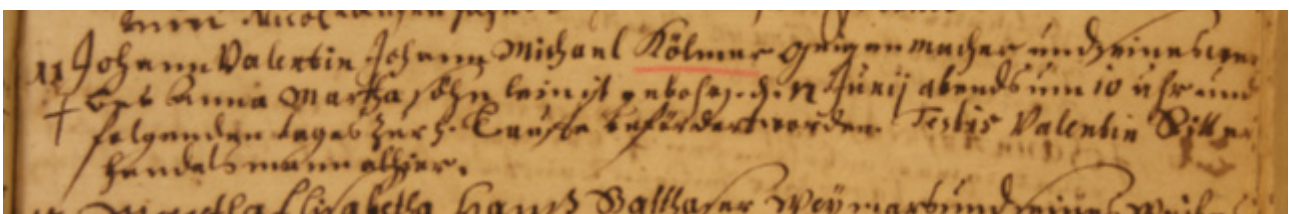 11 Johann Valentin Johann Michael Kölmer geigenmacher und seines wei-
bes Anna Martha söhnlein ist gebohr. d. 12 Junij abends um 10 uhr und
folgenden tages zur h. Tauffe befördert worden. Testis Valentin Ritter
handelsmann alhier.
Elisabetha Hanß Balthaser Weymar und seines Weib